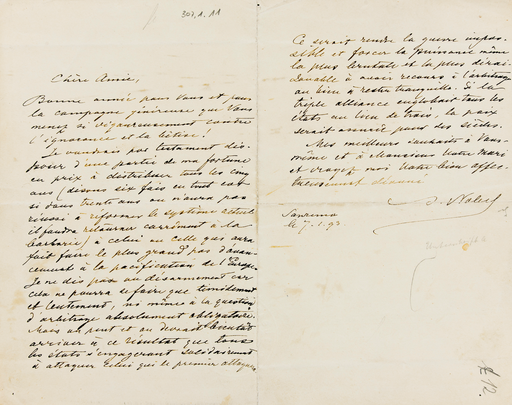 303.A.11
Chère Amie,
Bonne année pour Vous et pour
la campagne généreuse que Vous
menez si vigoureusement contre
l'ignorance et la bêtise!
Je voudrais par testament dis-
poser d'une partie de ma fortune
en prix à distribuer tous les cinq
ans (disons six fois en tout car
si dans trente ans on n'aura pas
réussi à réformer le système actuel
il faudra retourner carrément à la
barbarie) à celui ou celle qui aura
fait faire le plus grand pas d'avan-
cement à la pacification de l'Europe.
Je ne dis pas au désarmement car
cela ne pourra se faire que timidement
et lentement, ni même à la question
d'arbitrage absolument obligatoire.
Mais on peut et on devrait bientôt
arriver à ce résultat que tous
les états s'engageront solidairement
à attaquer celui qui le premier attaque
Ce serait rendre la guerre impos-
sible et forcer la puissance même
la plus brutale et la plus dérai-
sonable à avoir recours à l'arbitrage
ou bien à rester tranquille. Si la
triple alliance englobait tous les
états au lieu de trois, la paix
serait assurée pour des siècles.
Mes meilleurs souhaits à Vous-
même et à Monsieur Votre Mari
et croyez moi Votre bien affec-
tueusement dévoué
A. Nobel
Sanremo
le 7.1.93.
12